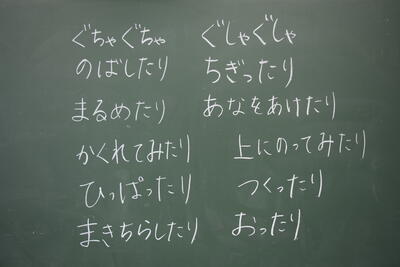 ぐちゃぐちゃ ぐしゃぐしゃ
のばしたり ちぎったり
まるめたり あなをあけたり
かくれてみたり 上にのってみたり
ひっぱったり つくったり
まきちらしたり おったり